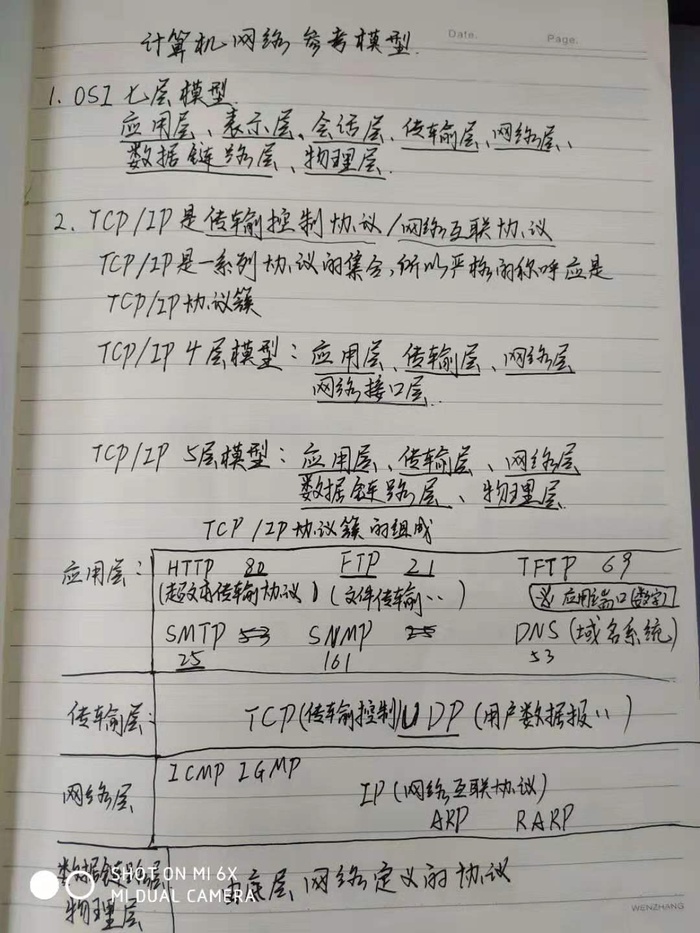 Date.
Page.
计算机网络参考模型.
1. OSI 七层模型.
应用层、表示层、会话层、传输层、网络层、
数据链路层、物理层.
2. TCP/IP 是传输控制协议/网络互联协议
TCP/IP是一系列协议的集合,所以严格的称呼应是
TCP/IP协议簇
TCP/IP 4层模型: 应用层、传输层、网络层
网络接口层.
TCP/IP 5层模型: 应用层、传输层、网络层
数据链路层、物理层.
TCP/IP协议簇的组成
应用层: HTTP 80 FTP 21 TFTP 69
(超文本传输协议) (文件传输..) (※ 应用端口[数字])
SMTP 53 SNMP 25 DNS (域名系统)
25 161 53
传输层: TCP(传输控制) UDP (用户数据报..)
网络层 ICMP IGMP
IP(网络互联协议)
ARP RARP
数据链路层 由底层网络定义的协议
物理层
SHOT ON MI 6X
MI DUAL CAMERA
WENZHANG